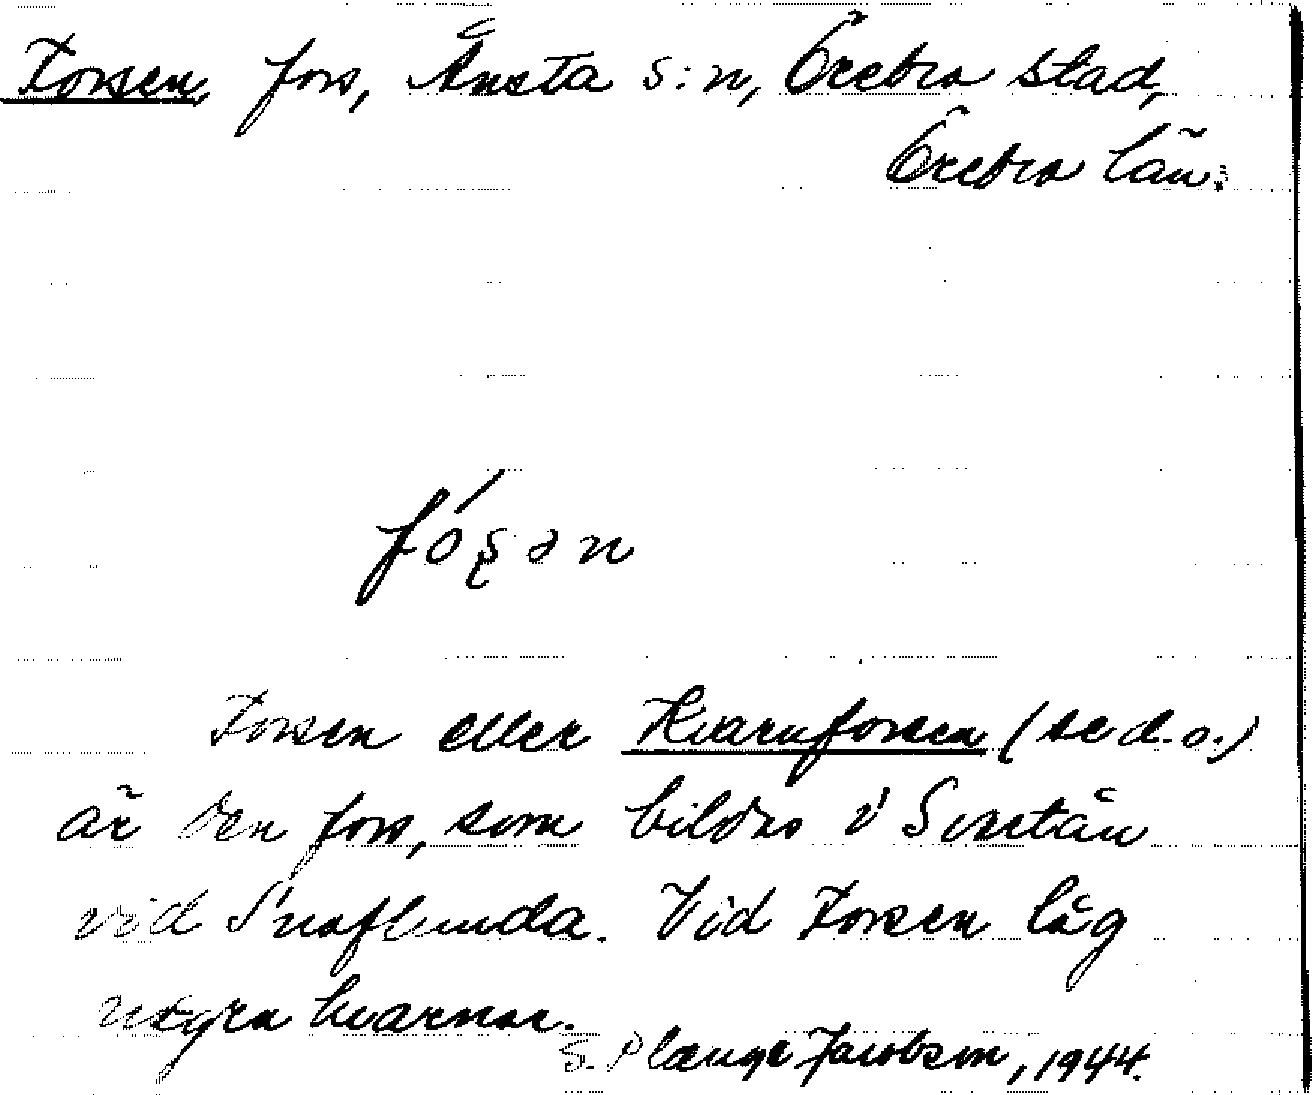 Forsen, fors, Ånsta s:n, Örebro stad,
Örebro län.
fó̀ʂən
Forsen eller Kvarnforsen (se d.o.)
är den fors, som bildas i Svartån
vid Snaflunda. Vid Forsen låg
några kvarnar.
S. Plænge Jacobson, 1944.